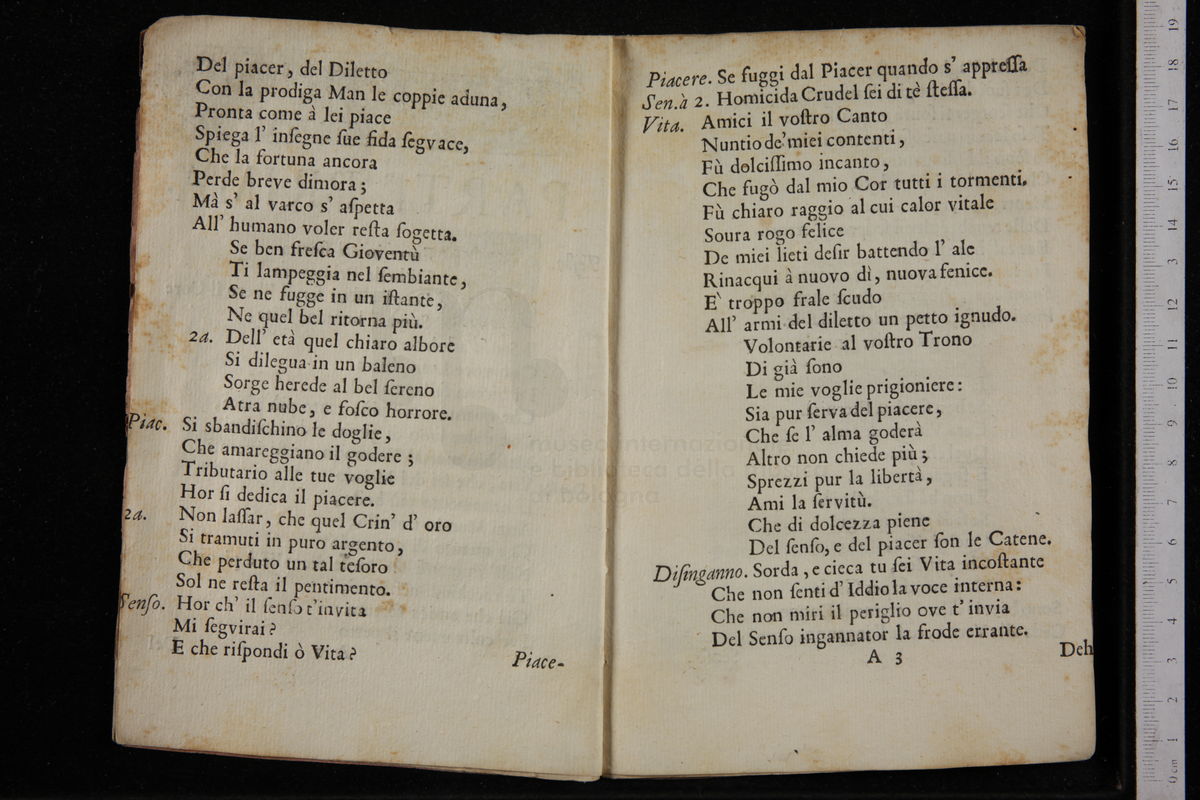 Del piacer, del Diletto
Con la prodiga Man le coppie aduna,
Pronta come à lei piace
Spiega l' inſegne ſue fida ſegvace,
Che la fortuna ancora
Perde breve dimora;
Mà s' al varco s' aſpetta
All' humano voler reſta ſogetta.
Se ben freſca Gioventù
Ti lampeggia nel ſembiante,
Se ne fugge in un iſtante,
Ne quel bel ritorna più.
2a. Dell' età quel chiaro albore
Si dilegua in un baleno
Sorge herede al bel ſereno
Atra nube, e foſco horrore.
Piac. Si sbandiſchino le doglie,
Che amareggiano il godere;
Tributario alle tue voglie
Hor ſi dedica il piacere.
2a. Non laſſar, che quel Crin' d' oro
Si tramuti in puro argento,
Che perduto un tal teſoro
Sol ne reſta il pentimento.
Senſo. Hor ch' il ſenſo t'invita
Mi ſegvirai?
E che riſpondi ò Vita?
Piace-
Piacere. Se fuggi dal Piacer quando s' appreſſa
Sen.à 2. Homicida Crudel ſei di tè ſteſſa.
Vita. Amici il voſtro Canto
Nuntio de' miei contenti,
Fù dolciſſimo incanto,
Che fugò dal mio Cor tutti i tormenti.
Fù chiaro raggio al cui calor vitale
Soura rogo felice
De miei lieti deſir battendo l' ale
Rinacqui à nuovo dì, nuova fenice.
E' troppo frale ſcudo
All' armi del diletto un petto ignudo.
Volontarie al voſtro Trono
Di già ſono
Le mie voglie prigioniere:
Sia pur ſerva del piacere,
Che ſe l' alma goderà
Altro non chiede più;
Sprezzi pur la libertà,
Ami la ſervitù.
Che di dolcezza piene
Del ſenſo, e del piacer ſon le Catene.
Diſinganno. Sorda, e cieca tu ſei Vita incoſtante
Che non ſenti d' Iddio la voce interna:
Che non miri il periglio ove t' invia
Del Senſo ingannator la frode errante.
A 3
Deh